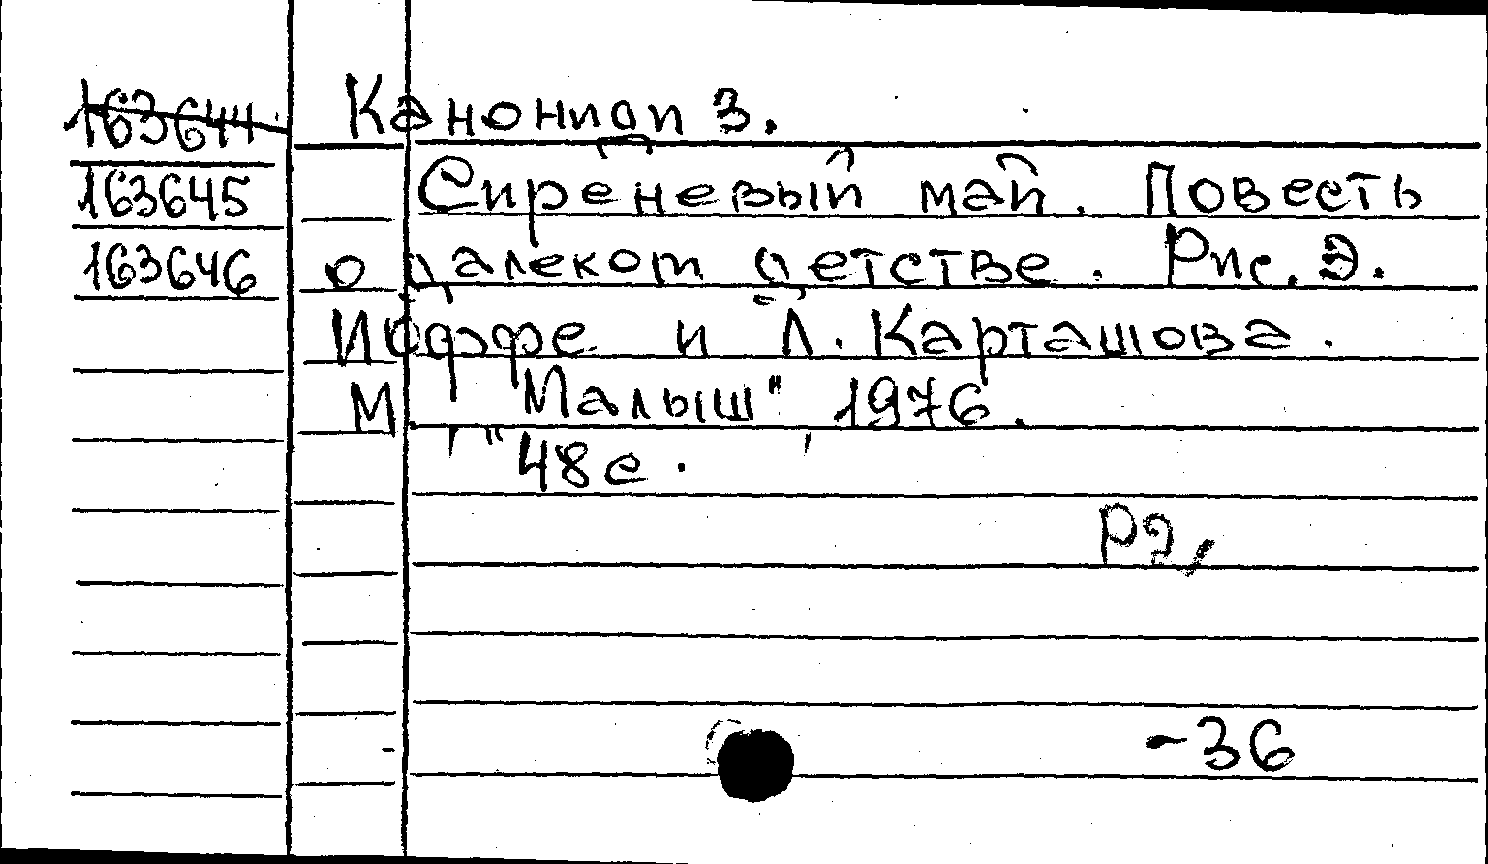 163644 Канониди З.
163645 Сиреневый май. Повесть
163646 о далеком детстве. Рис. Э.
Иоффе и Л. Карташова.
М., "Малыш", 1976.
48 с.
Р2,
-36